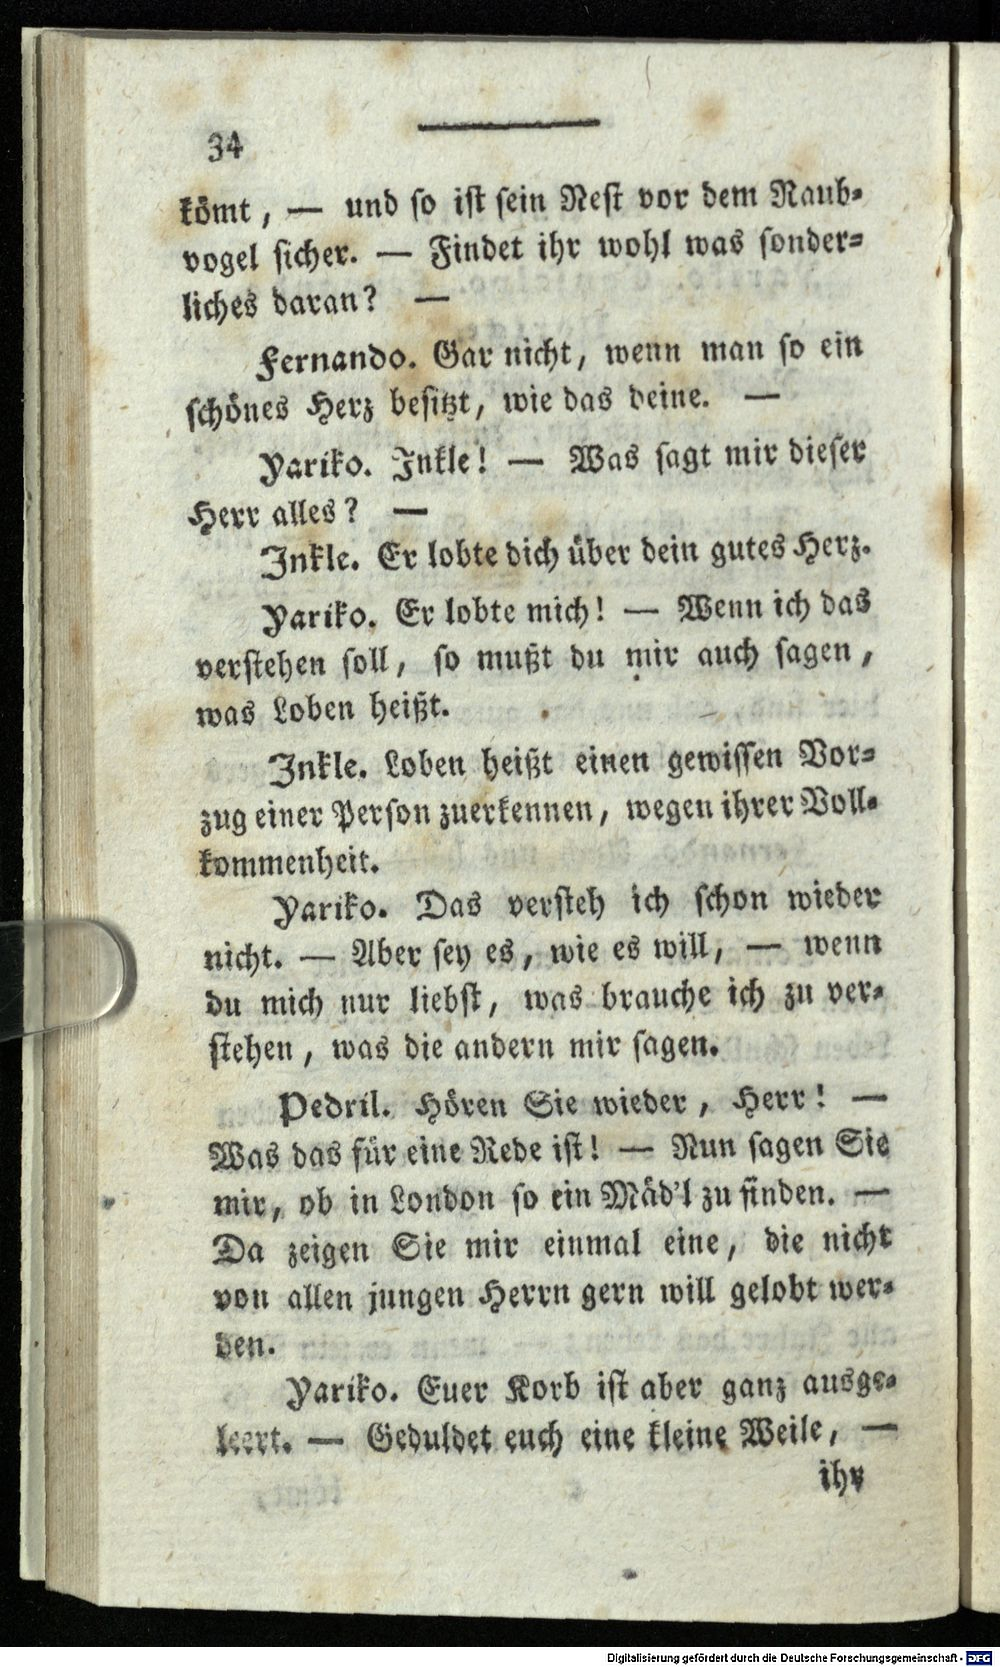 34
kömt, — und so ist sein Nest vor dem Raub-
vogel sicher. — Findet ihr wohl was sonder-
liches daran? —
Fernando. Gar nicht, wenn man so ein
schönes Herz besitzt, wie das deine. —
Yariko. Inkle! — Was sagt mir dieser
Herr alles? —
Inkle. Er lobte dich über dein gutes Herz.
Yariko. Er lobte mich! — Wenn ich das
verstehen soll, so mußt du mir auch sagen,
was Loben heißt.
Inkle. Loben heißt einen gewissen Vor-
zug einer Person zuerkennen, wegen ihrer Voll-
kommenheit.
Yariko. Das versteh ich schon wieder
nicht. — Aber sey es, wie es will, — wenn
du mich nur liebst, was brauche ich zu ver-
stehen, was die andern mir sagen.
Pedril. Hören Sie wieder, Herr! —
Was das für eine Rede ist! — Nun sagen Sie
mir, ob in London so ein Mäd'l zu finden. —
Da zeigen Sie mir einmal eine, die nicht
von allen jungen Herrn gern will gelobt wer-
den.
Yariko. Euer Korb ist aber ganz ausge-
leert. — Geduldet euch eine kleine Weile, —
ihr
Digitalisierung gefördert durch die Deutsche Forschungsgemeinschaft - DFG